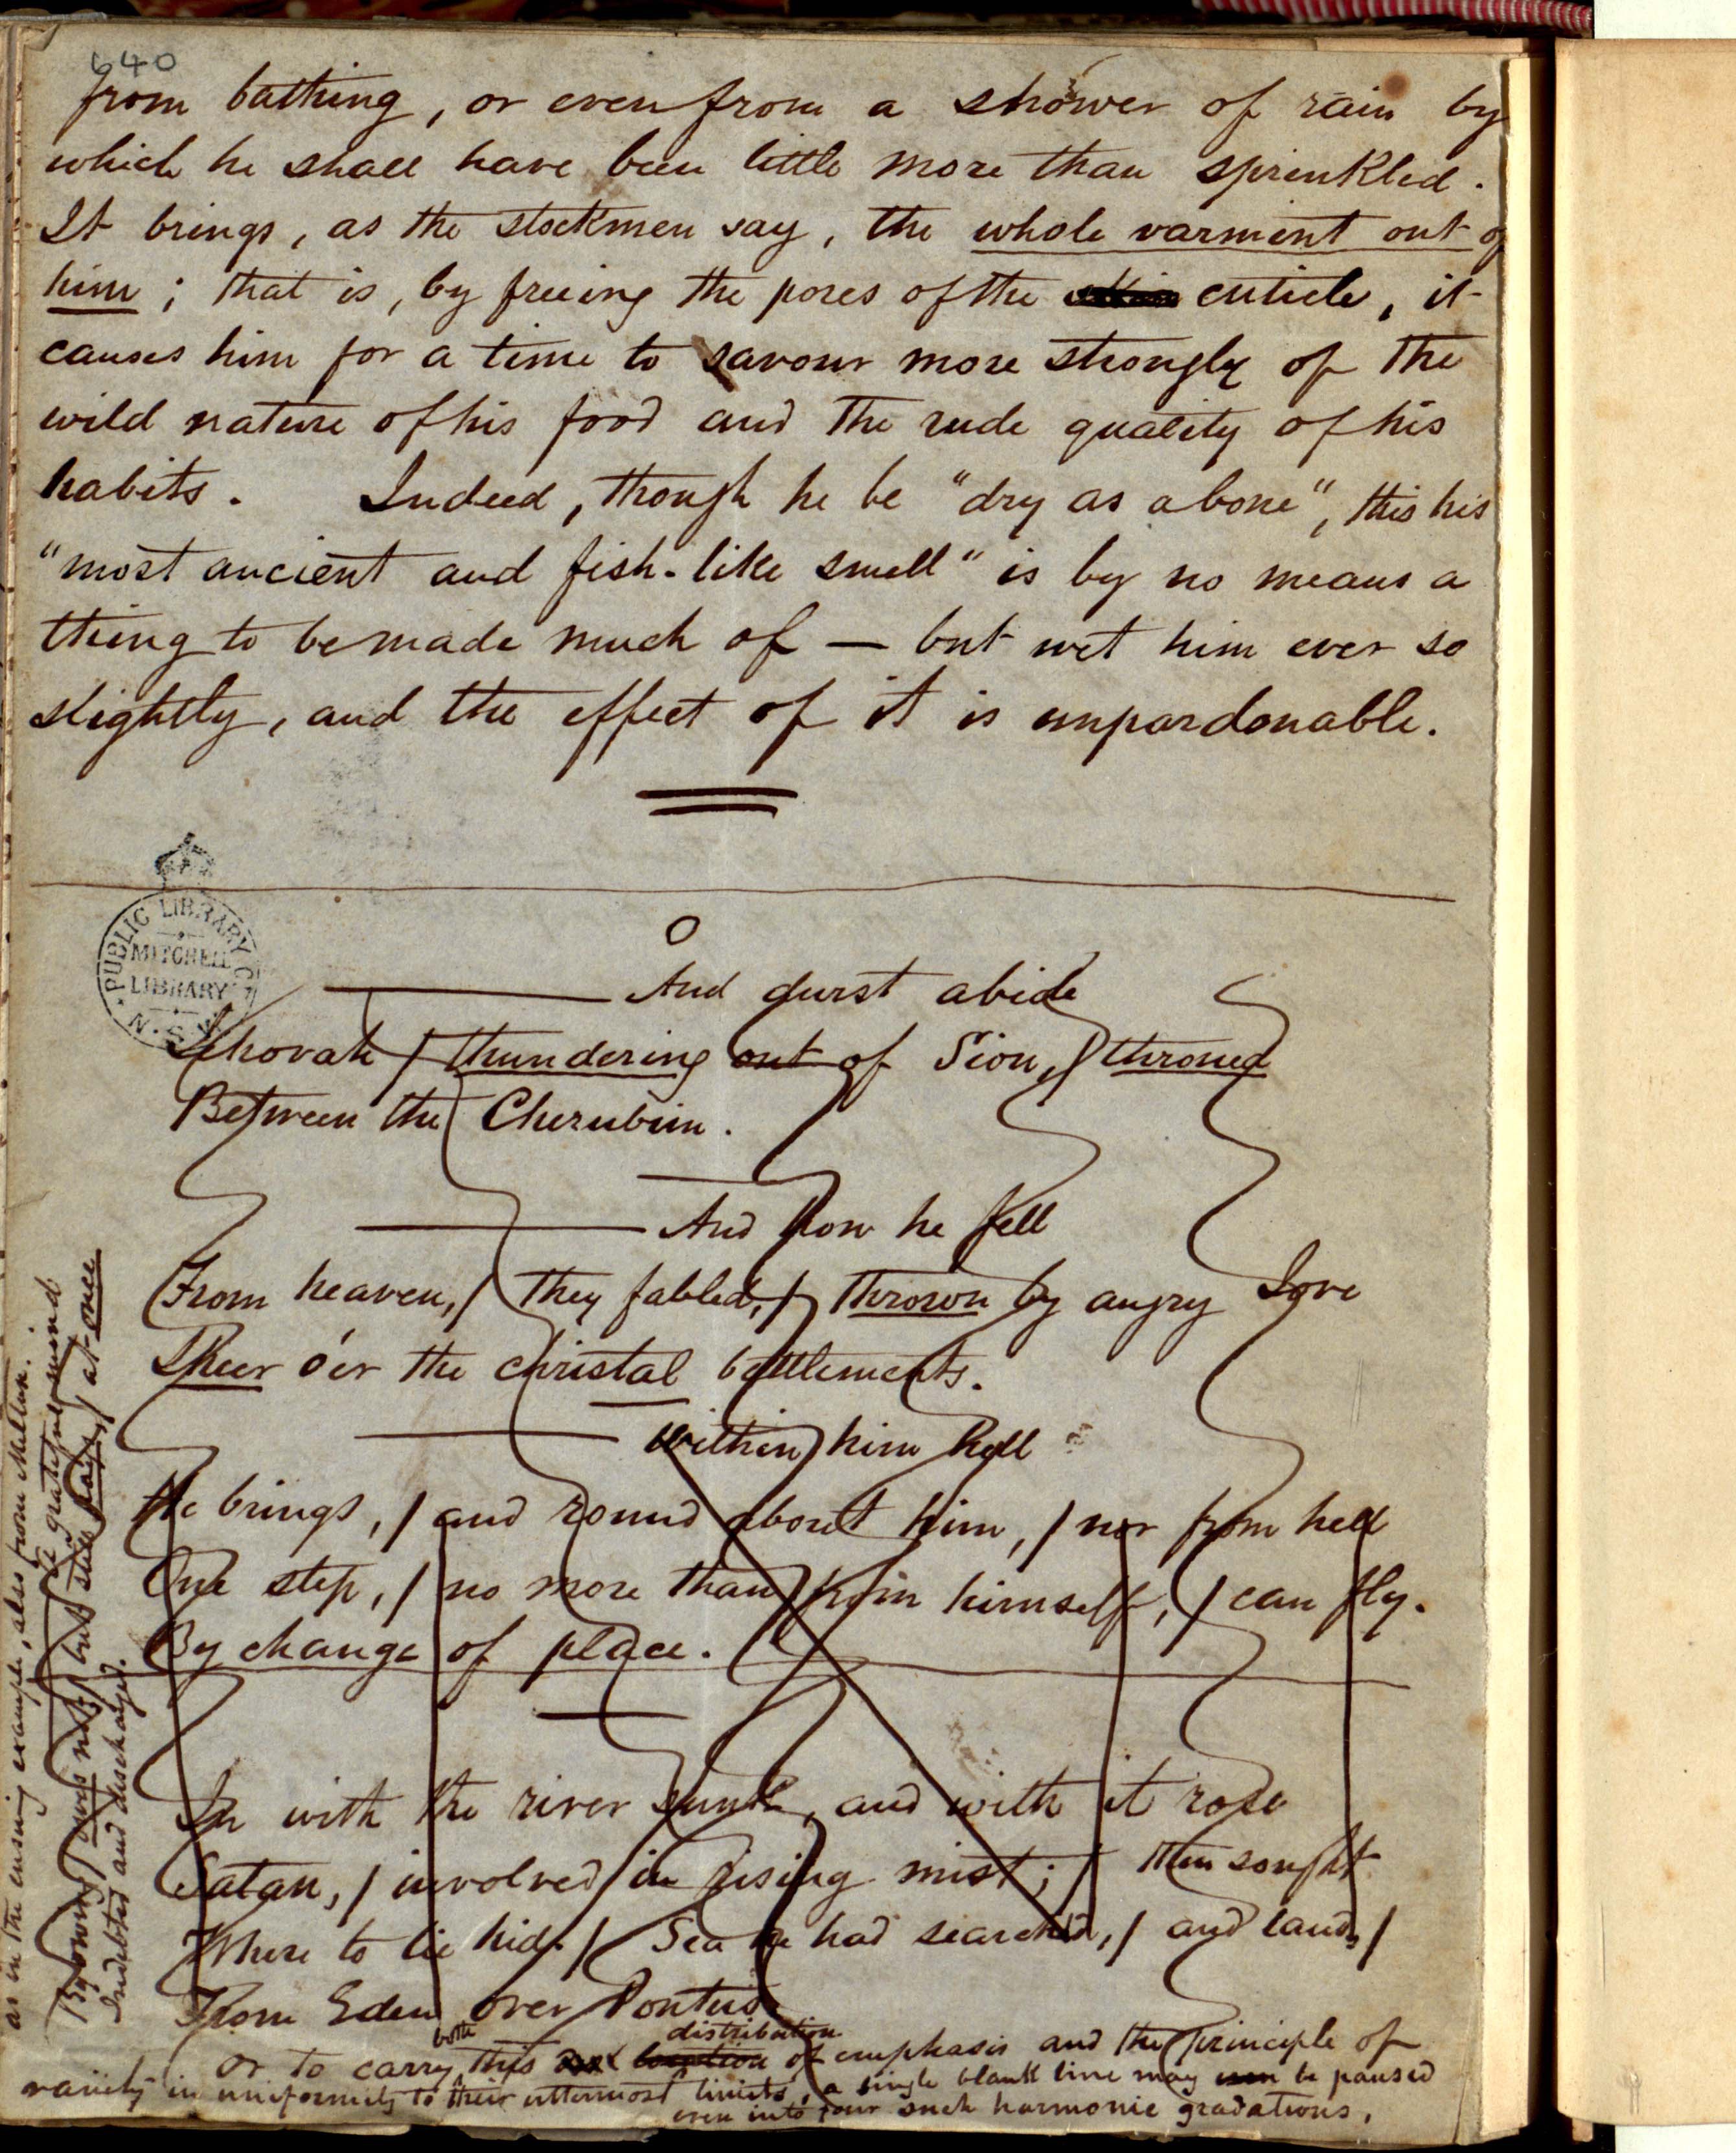 640
from bathing, or even from a shower of rain by
which he shall have been little more than sprinkled.
It brings, as the stockmen say, the whole varment out of
him; that is, by freeing the pores of the cuticle, it
causes him for a time to savour more strongly of the
wild nature of his food and the rude quality of his
habits. Indeed, though he be "dry as a bone", this his
"most ancient and fish-like smell" is by no means a
thing to be made much of — but wet him ever so
slightly, and the effect of it is unpardonable.
PUBLIC LIBRARY
MITCHELL
LIBRARY
N.S.W
And durst abide
Jehovah / thundering out of Sion, / throned
Between the Cherubim.
And how he fell
From heaven, / they fabled, / thrown by angry Jove
Sheer o'er the christal battlements.
Within him hell
He brings, / and round about him, / nor from hell
One step, / no more than from himself, / can fly.
By change of place.
In with the river sunk, and with it rose
Satan, / involved / in rising mist; / then sought
Where to lie hid. / Sea he had searched, / and land, /
From Eden over Pontus
or to carry both this distribution of emphasis and the principle of
variety in uniformity to their uttermost limits, a single blank line may be paused
even into four such harmonic gradations,
as in the ensuing example, also from Milton.
a grateful mind
By owing / owes not, / but still pays, / at once
Indebted and discharged.